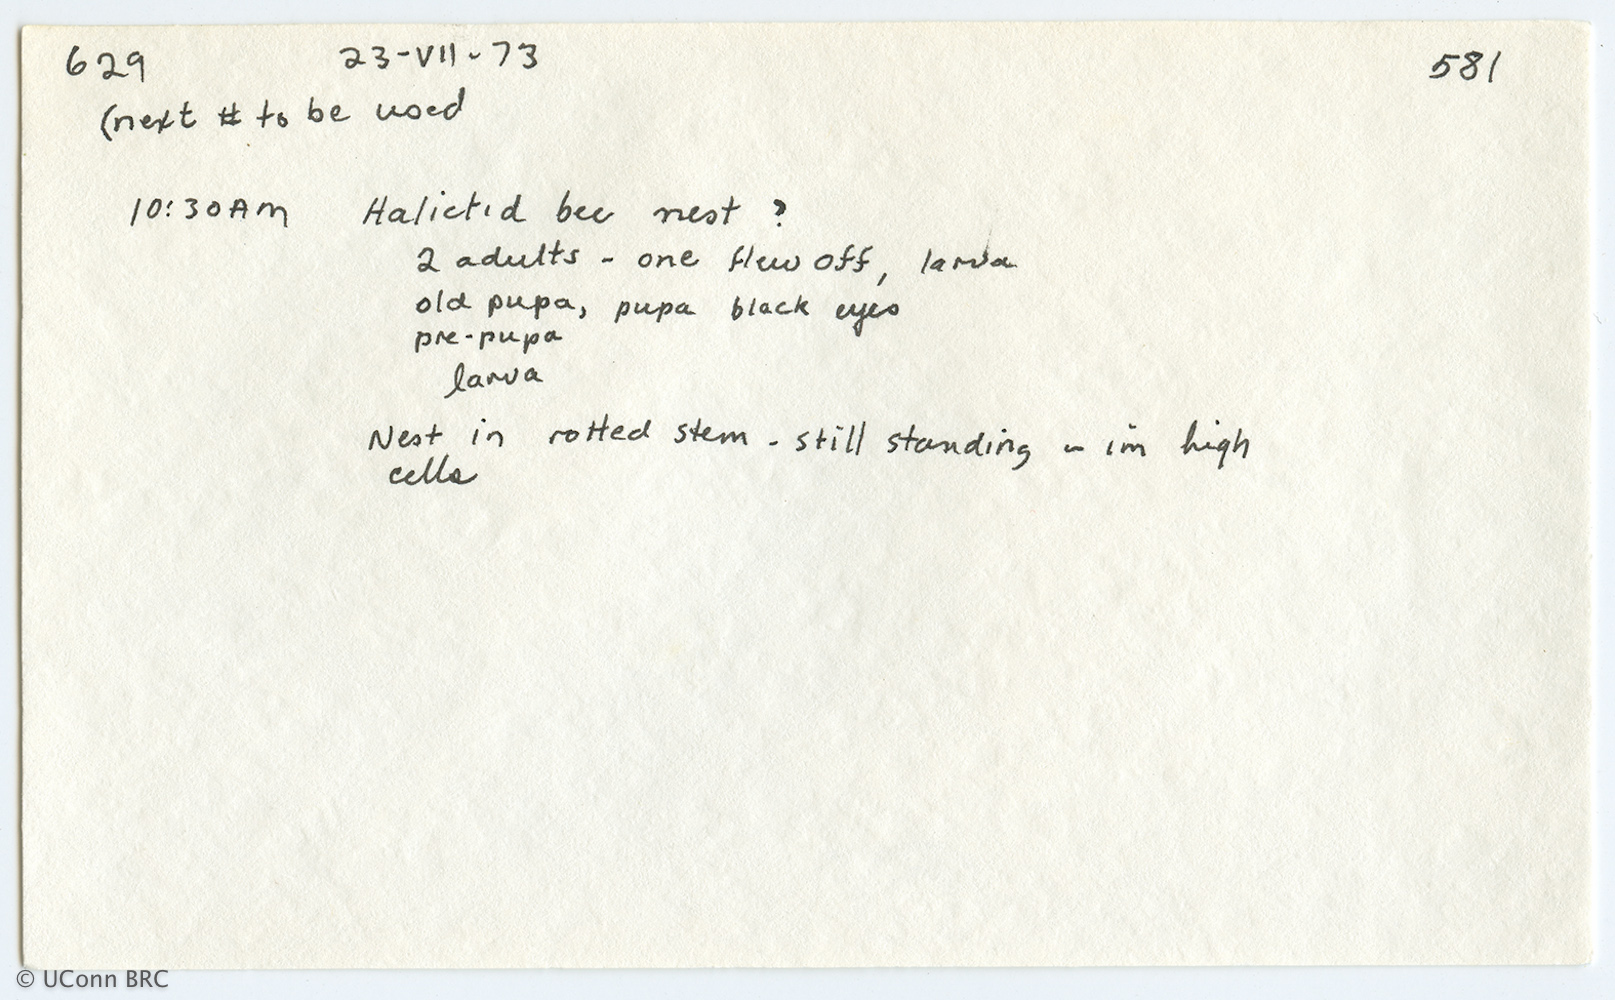 629 23-VII-73 581
(next # to be used
10:30AM Halictid bee nest ?
2 adults - one flew off, larva
old pupa, pupa black eyes
pre-pupa
larva
Nest in rotted stem - still standing ~ 1m high
cells
© UConn BRC